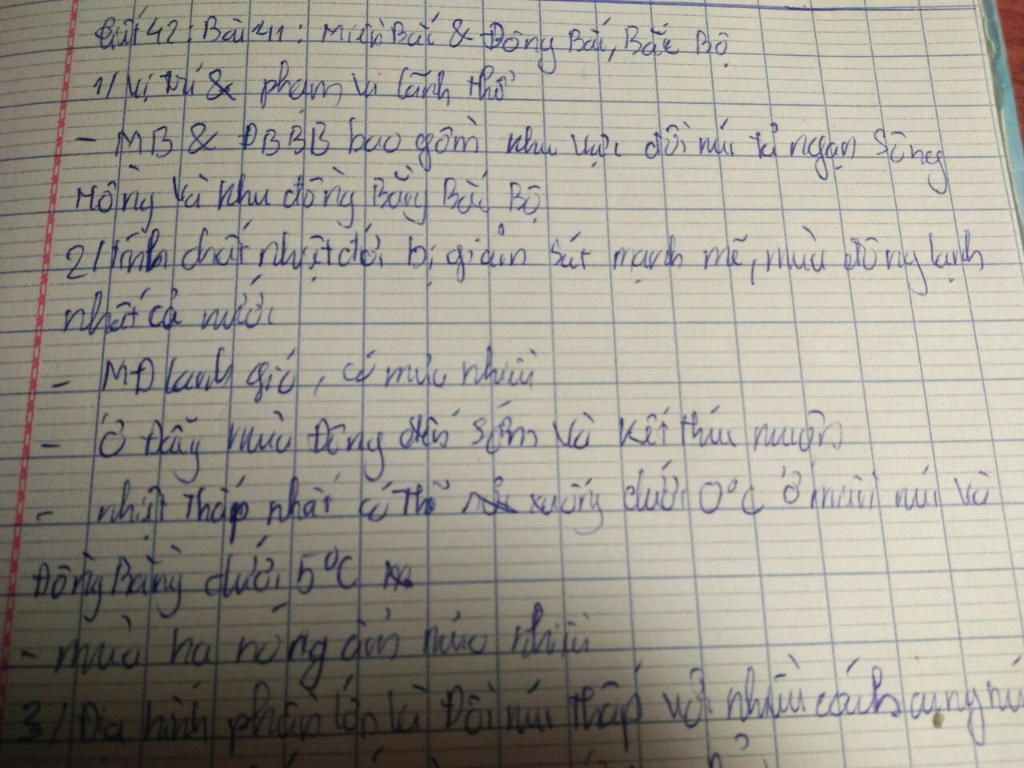 Tiết 42: Bài 41: Miền Bắc & Đông Bắc, Bắc Bộ
1/ Vị trí & phạm vi lãnh thổ
- MB & ĐBBB bao gồm khu vực đồi núi tả ngạn Sông
Hồng và khu đồng Bằng Bắc Bộ
2/ Tính chất nhiệt đới bị giảm sút mạnh mẽ, mùa đông lạnh
nhất cả nước
- MĐ lạnh gió, có mưa nhiều
- Ở Đây mùa Đông đến sớm và kết thúc muộn
- nhiệt thấp nhất có thể xuống dưới 0°C ở miền núi và
Đồng Bằng dưới 5°C
- mùa hạ nóng ẩm mưa nhiều
3/ Địa hình phần lớn là Đồi núi thấp với nhiều cánh cung nú